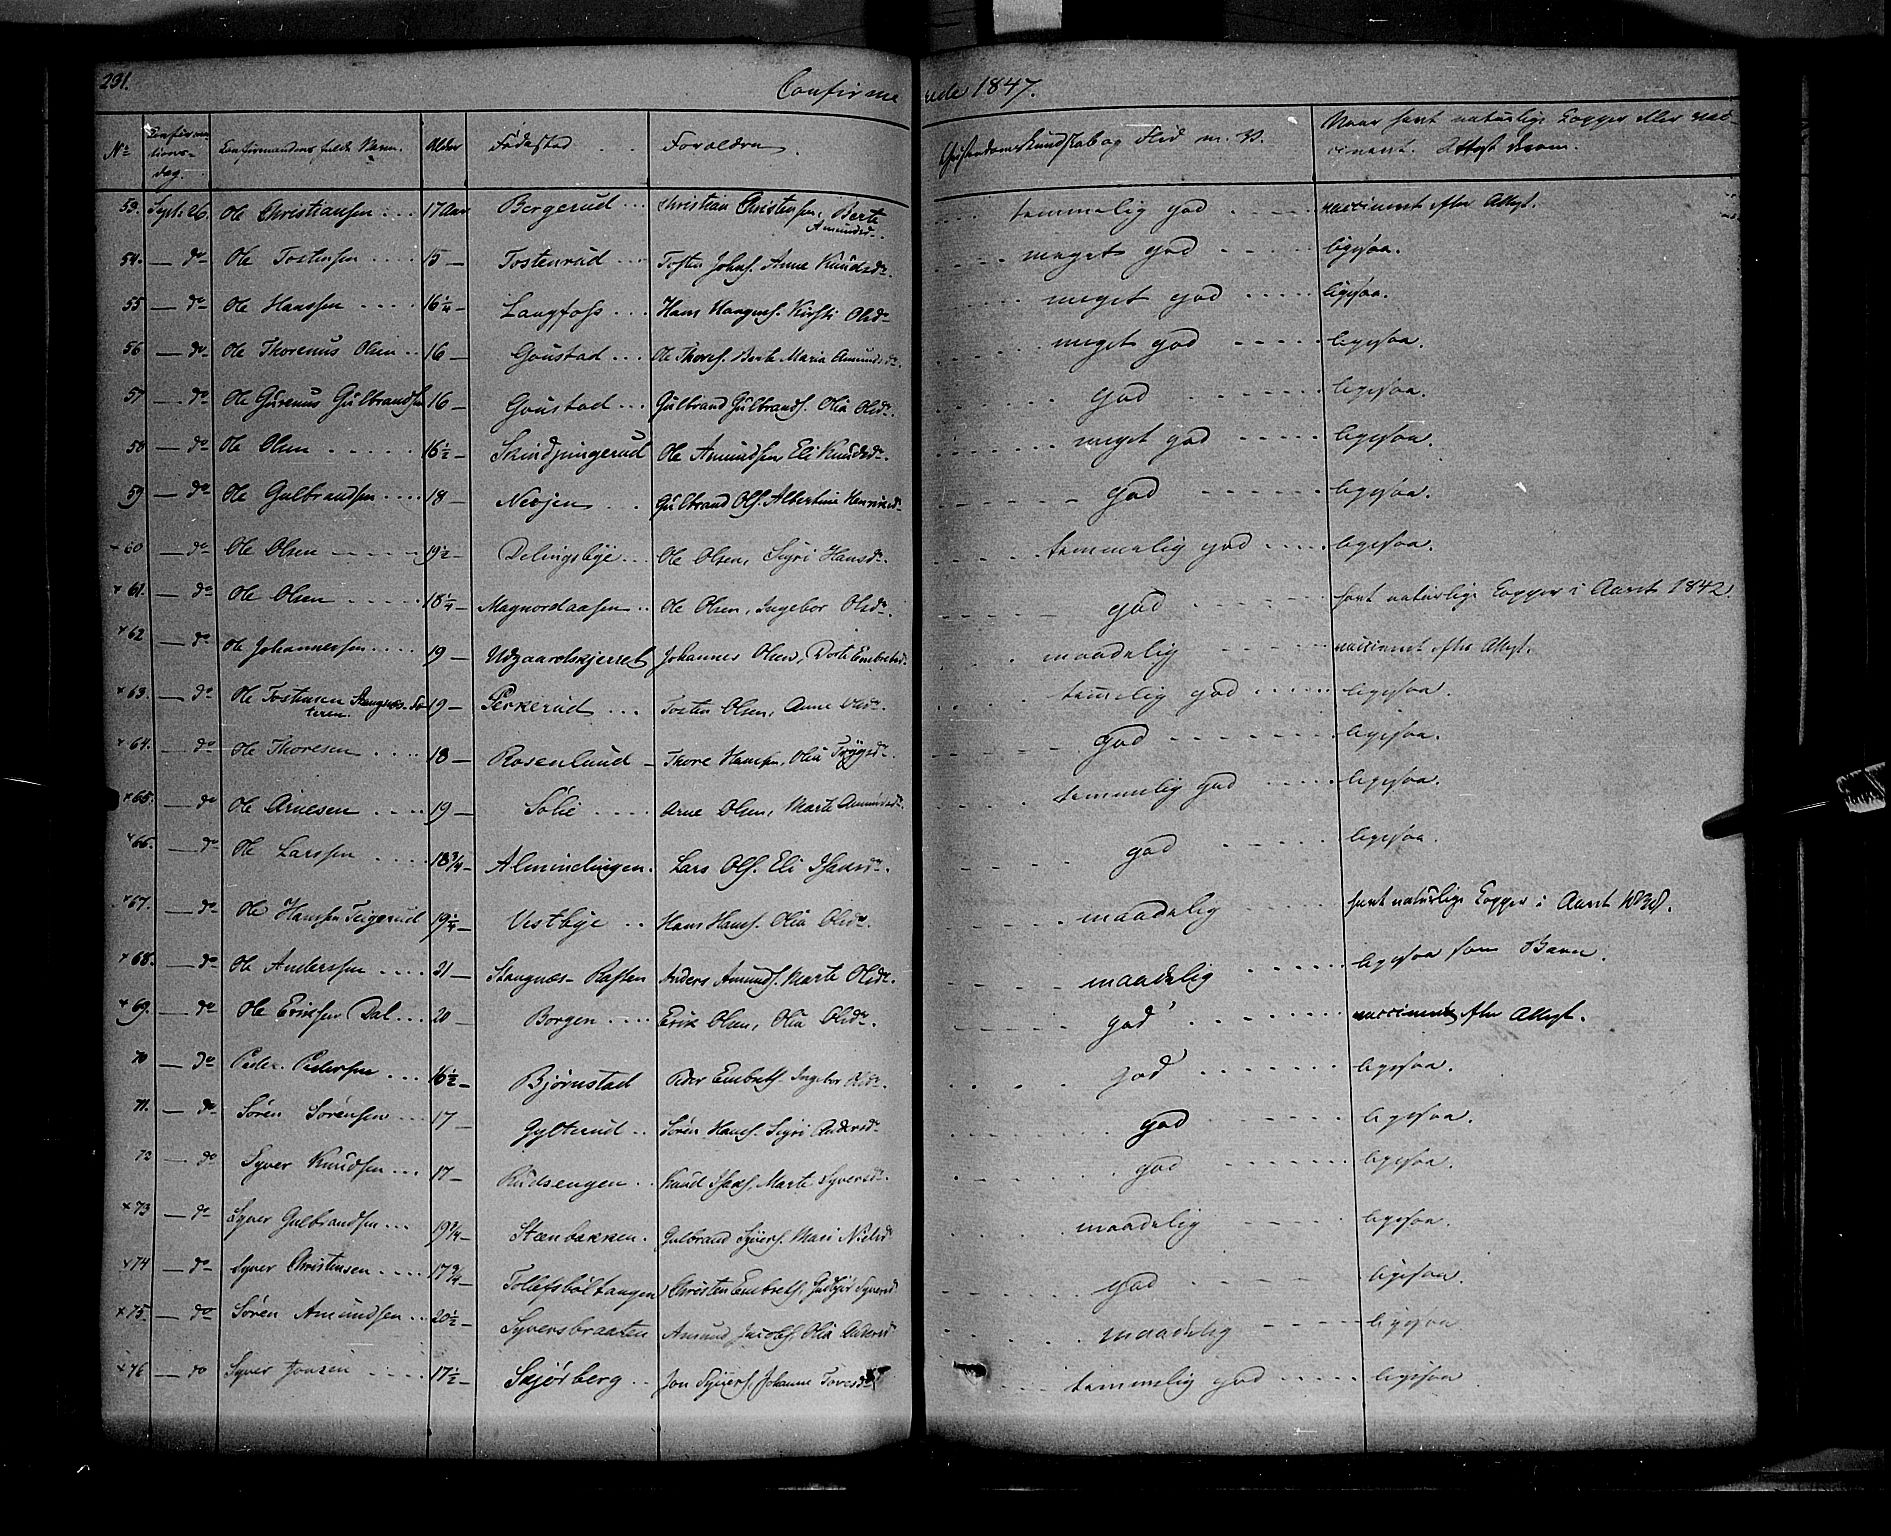 231.
Confirmerede 1847.
No Confirmations-dag. Confirmandens fulde Navn. Alder Fødested Forældre. Christendomskundskab og Flid m. V. Naar havt naturlige Kopper eller vaccineret. Attest derom.
53. Sept: 26. Ole Christiansen 17 Aar Bergerud Christian Christensen, Berte Amundsd. temmelig god vaccineret efter Attest.
54. — do Ole Tostensen 15 — Tostenrud Tosten Johns. Anne Knudsdr. meget god ligesaa.
55 — do Ole Hanssen 16 1/4 — Langfoss Hans Kirsti Olsdr meget god ligesaa.
56 — do Ole Thorenus Olsen 16 — Goustad Ole Thores. Berte Maria Amundsdr. meget god ligesaa.
57 — do Ole Gurenus Gulbrandsen 16 — Goustad Gulbrand Gulbrands. Olia Olsdr. god ligesaa.
58 — do Ole Olsen 16 1/2 — Ole Amundsen Eli Knudsdr. meget god ligesaa.
59 — do Ole Gulbrandsen 18 — Gulbrand Ols. Albertine Henriksdr god ligesaa.
× 60 — do Ole Olsen 19 1/2 — Delingsbye Ole Olsen, Sigri Hansdr. temmelig god ligesaa.
× 61. — do Ole Olsen 18 1/4 — Magnordaasen Ole Olsen, Ingebor Olsdr. god havt naturlige Kopper i Aaret 1842.
× 62 — do Ole Johannessen 19 — Udgaardskjerret Johannes Olsen, Dorte Embretsd. maadelig vaccineret efter Attest.
× 63. — do Ole Tostensen Stangnæs-Sæteren. 19 — Perkerud Tosten Olsen, Anne Olsdr. temelig god ligesaa.
× 64. — do Ole Thoresen 18 — Rosenlund Thore Hansen, Olia Tryggsdr. god ligesaa.
× 65. — do Ole Arnesen 19 — Solie Arne Olsen, Marte Amundsdr. temmelig god ligesaa
× 66. — do Ole Larssen 18 3/4 — Almindingen. Lars Ols. Eli Isaksdr. god ligesaa.
× 67. — do Ole Hanssen Teigerud 19 1/4 — Vestbye Hans Hans. Olia Olsdr. maadelig havt naturlige Kopper i Aaret 1838.
× 68. — do Ole Anderssen 21 — Stangnæs- Anders Amunds. Marte Olsdr. maadelig ligesaa som Barn.
× 69. — do Ole Eriksen Dal 20 — Borgen Erik Olsen, Olia Olsdr. god vaccineret efter Attest.
70 — do Peder Pedersen 16 1/2 — Bjørnstad Peder Embrets. Ingebor Olsdr. god ligesaa.
71. — do Søren Sørensen 17 — Gylterud Søren Hans. Sigri Andersdr god ligesaa.
72 — do Syver Knudsen 17 — Rudsengen Knud Isaks. Marte Syversdr. god ligesaa.
× 73 — do Syver Gulbrandsen 19 3/4 — Steenbakken. Gulbrand Syvers. Mari Nielsd maadelig ligesaa.
× 74 — do Syver Christensen 17 3/4 — Tollefsböltangen Christen Embrets. Syversd god ligesaa.
× 75. — do Søren Amundsen 20 1/2 — Syversbraaten Amund Jacobs. Olia Andersd maadelig ligesaa
× 76 — do Syver Jonsen 17 1/2 — Skjørberg Jon Syvers. Johanne Toresdr temmelig god ligesaa